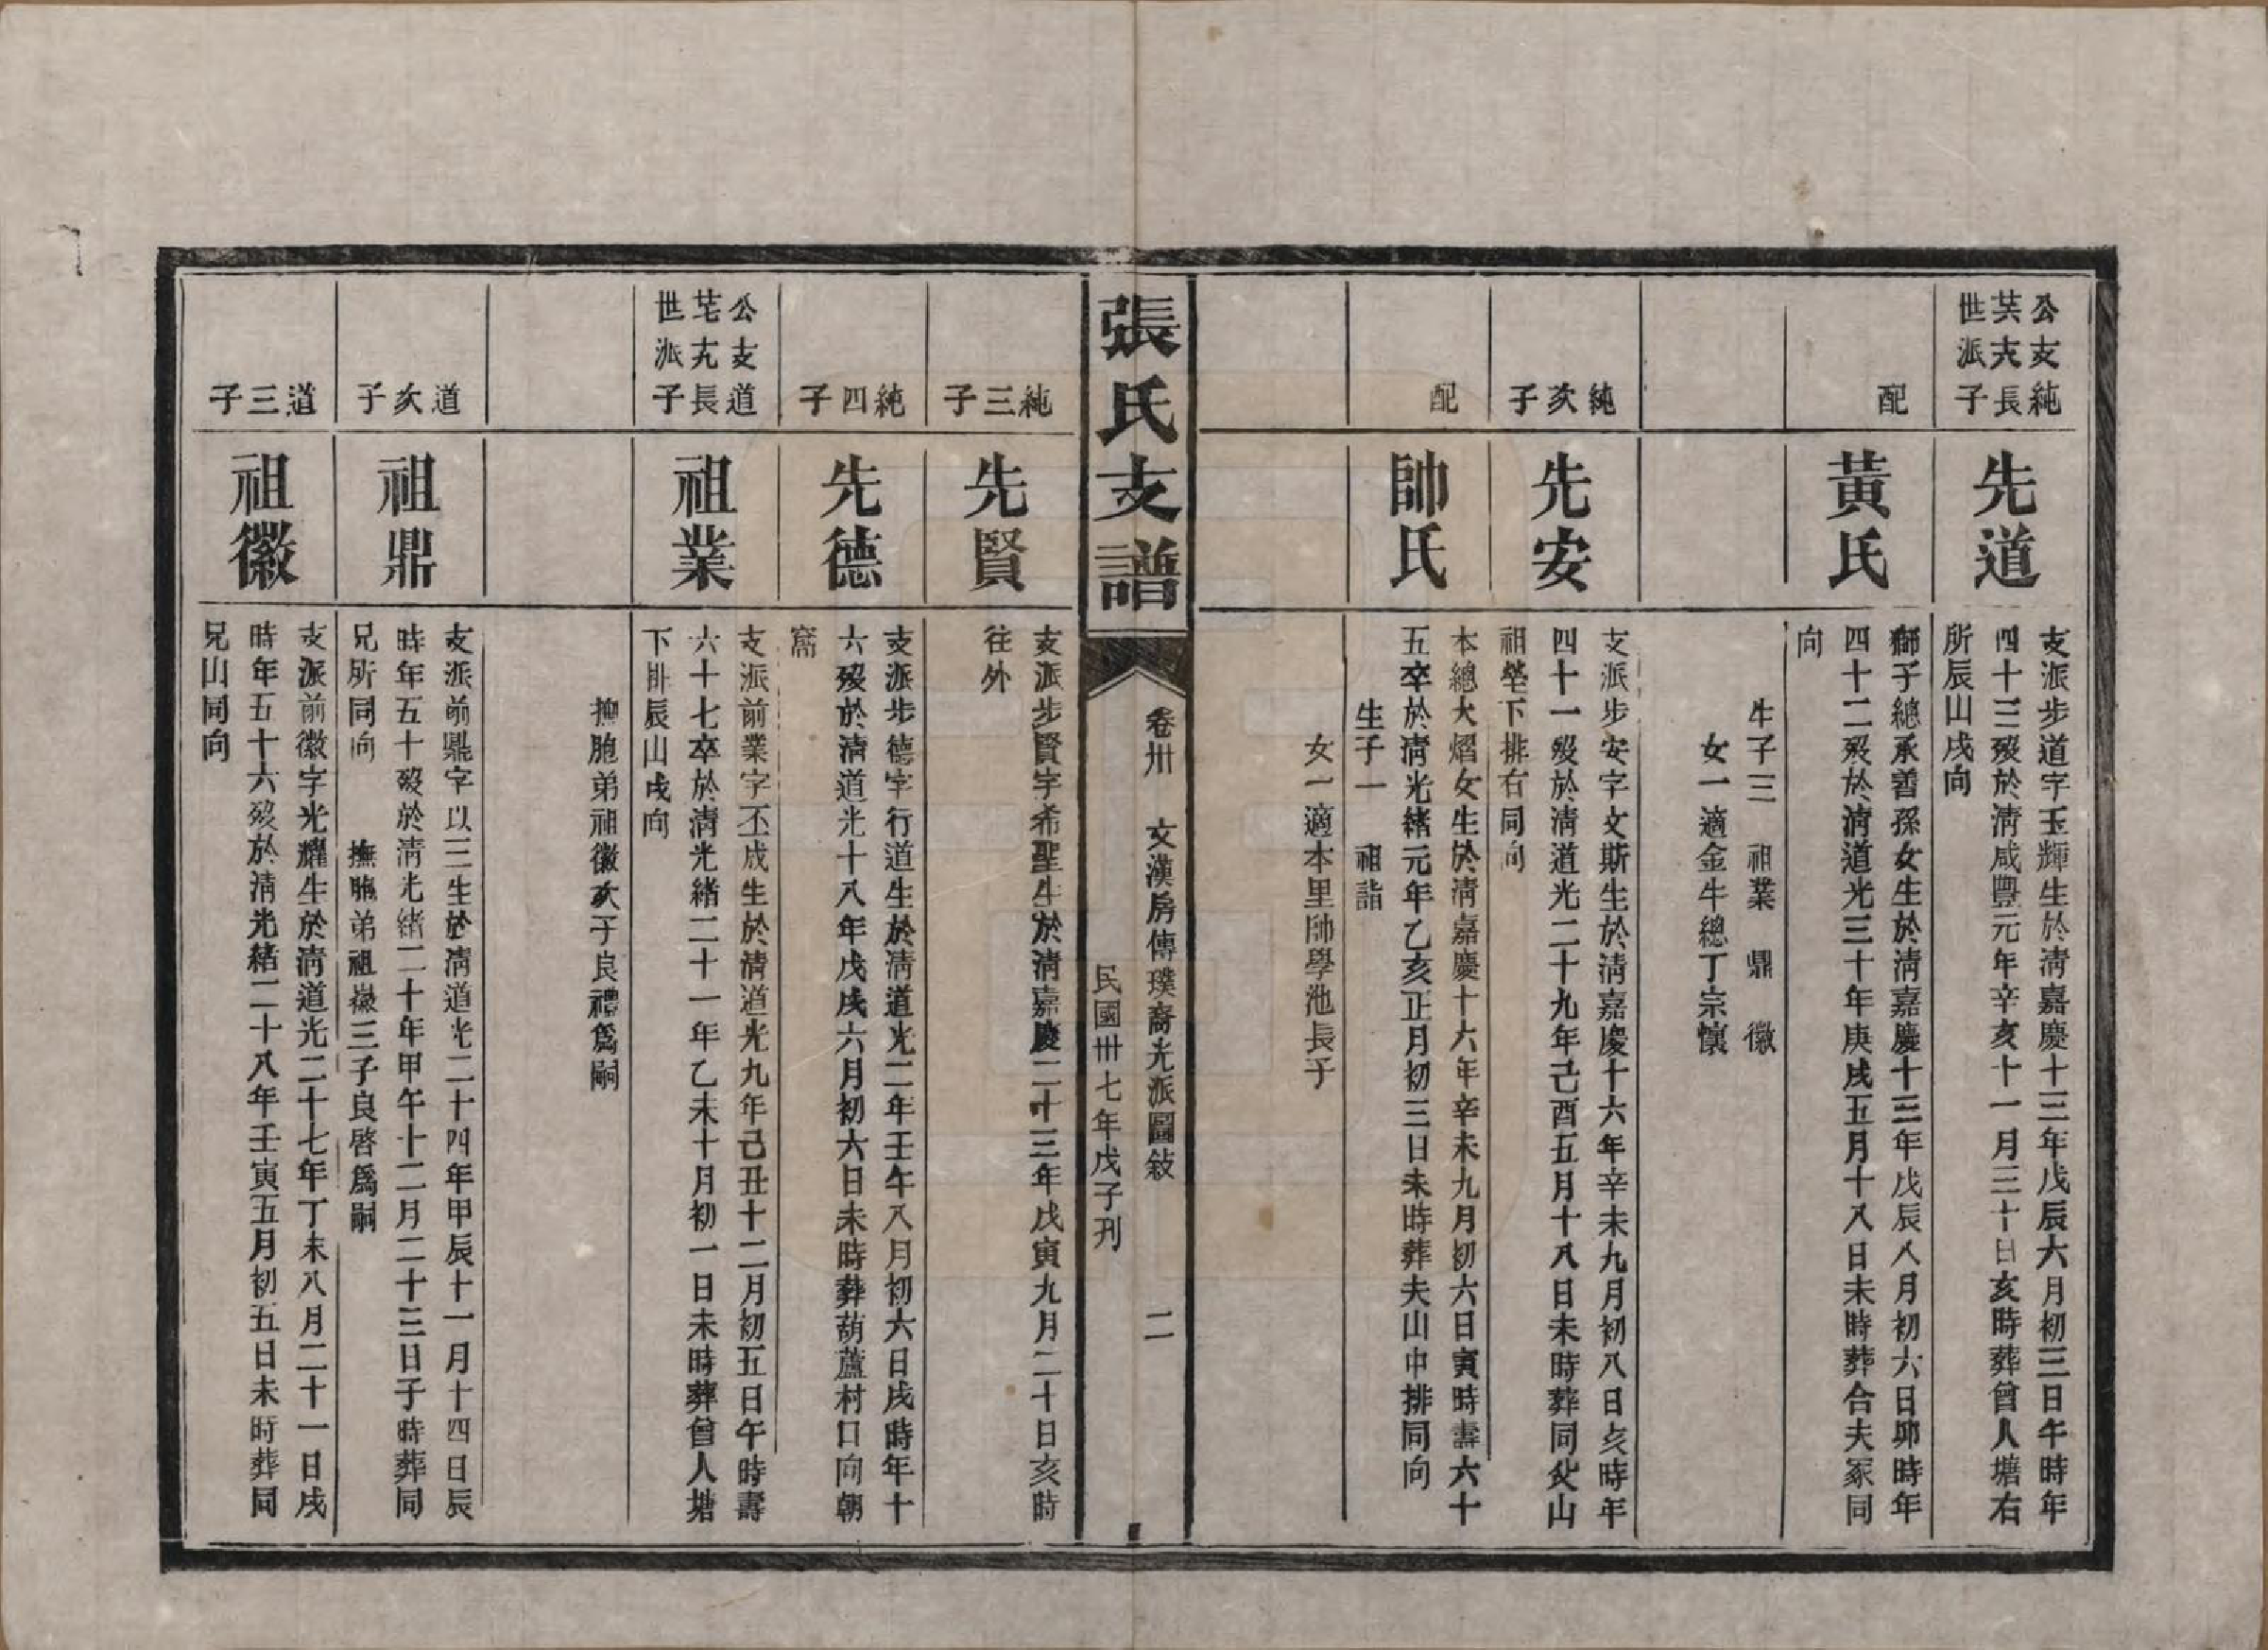 公支純
芖大長
世派子
先道
支派步道字玉輝生於清嘉慶十三年戊辰六月初三日午時年
四十三歿於清咸豐元年辛亥十一月三十日亥時葬曾人塘右
所辰山戌向
配
黃氏
獅子總承善孫女生於清嘉慶十三年戊辰八月初六日卯時年
四十二歿於清道光三十年庚戌五月十八日未時葬合夫冢同
向
生子三 祖業 鼎 徽
女一適金牛總丁宗懷
純次子
先安
支派步安字文斯生於清嘉慶十六年辛未九月初八日亥時年
四十一歿於清道光二十九年己酉五月十八日未時葬同父山
祖塋下排右同向
配
帥氏
本總大熠女生於清嘉慶十六年辛未九月初六日寅時壽六十
五卒於清光緒元年乙亥正月初三日未時葬夫山中排同向
生子一 祖詣
女一適本里帥學池長子
張氏支譜
卷卅 文漢房傳璞裔光派圖敍 二
民國卅七年戊子刊
純三子
先賢
支派步賢字希聖生於清嘉慶二十三年戊寅九月二十日亥時
往外
純四子
先德
支派步德字行道生於清道光二年壬午八月初六日戌時年十
六歿於清道光十八年戊戌六月初六日未時葬葫蘆村口向朝
窩
公支道
芼大長
世派子
祖業
支派前業字丕成生於清道光九年己丑十二月初五日午時壽
六十七卒於清光緒二十一年乙未十月初一日未時葬曾人塘
下排辰山戌向
撫胞弟祖徽次子良禮爲嗣
道次子
祖鼎
支派前鼎字以三生於清道光二十四年甲辰十一月十四日辰
時年五十歿於清光緒二十年甲午十二月二十三日子時葬同
兄所同向 撫胞弟祖徽三子良啓爲嗣
道三子
祖徽
支派前徽字光耀生於清道光二十七年丁未八月二十一日戌
時年五十六歿於清光緒二十八年壬寅五月初五日未時葬同
兄山同向